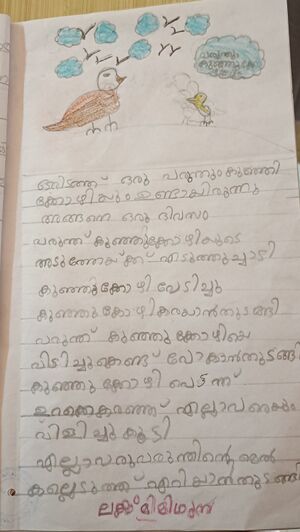 പരുന്തും
കുഞ്ഞുകോ
ഴിയും
ഒരിടത്ത് ഒരു പരുന്തും കുഞ്ഞി
ക്കോഴിയും ഉണ്ടായിരുന്നു
അങ്ങനെ ഒരു ദിവസം
പരുന്ത് കുഞ്ഞിക്കോഴിയുടെ
അടുത്തേയ്ക്ക് എടുത്തുച്ചാടി
കുഞ്ഞുക്കോഴി പേടിച്ചു
കുഞ്ഞുകോഴി കരയാൻതുടങ്ങി
പരുന്ത് കുഞ്ഞു കോഴിയെ
പിടിച്ചുകൊണ്ട് പോകാൻതുടങ്ങി
കുഞ്ഞു കോഴി പെട്ടന്ന്
ഉറക്കെകരഞ്ഞ് എല്ലാവരെയും
വിളിച്ചു കൂട്ടി
എല്ലാവരുംപരുന്തിന്റെ മേൽ
കല്ലെടുത്ത് എറിയാൻതുടങ്ങി